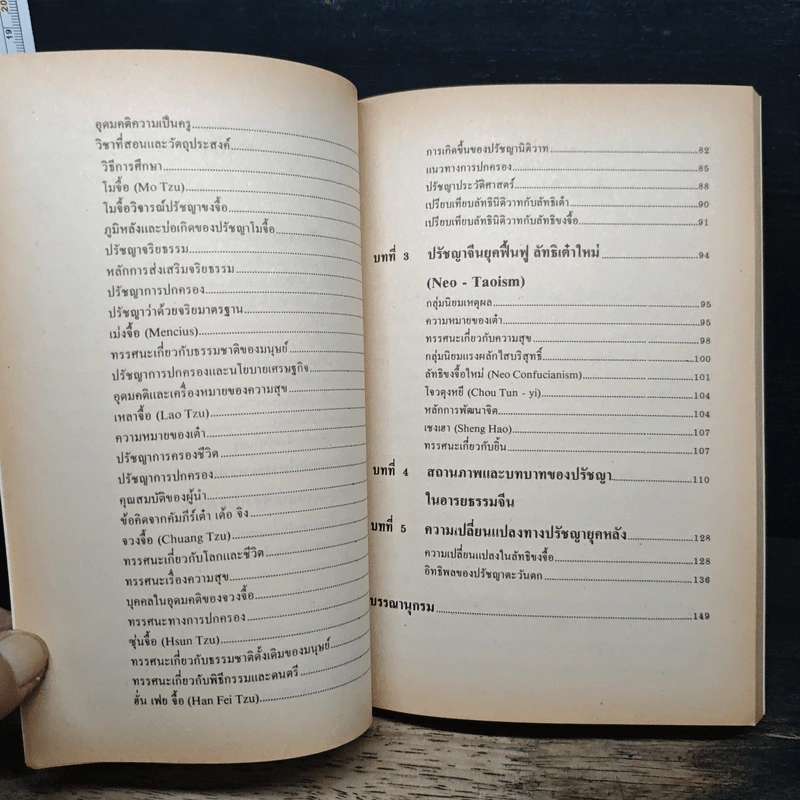 20
19
อุดมคติความเป็นครู
วิชาที่สอนและวัตถุประสงค์
วิธีการศึกษา
โมจื้อ (Mo Tzu)
โมจื้อวิจารณ์ปรัชญาขงจื้อ
ภูมิหลังและบ่อเกิดของปรัชญาโมจื้อ
ปรัชญาจริยธรรม
หลักการส่งเสริมจริยธรรม
ปรัชญาการปกครอง
ปรัชญาว่าด้วยจริยมาตรฐาน
เม่งจื้อ (Mencius)
ทรรศนะเกี่ยวกับธรรมชาติของมนุษย์
ปรัชญาการปกครองและนโยบายเศรษฐกิจ
อุดมคติและเครื่องหมายของความสุข
เหลาจื้อ (Lao Tzu)
ความหมายของเต๋า
ปรัชญาการครองชีวิต
ปรัชญาการปกครอง
คุณสมบัติของผู้นำ
ข้อคิดจากคัมภีร์เต๋า เต้อ จิง
จวงจื้อ (Chuang Tzu)
ทรรศนะเกี่ยวกับโลกและชีวิต
ทรรศนะเรื่องความสุข
บุคคลในอุดมคติของจวงจื้อ
ทรรศนะทางการปกครอง
ซุ่นจื้อ (Hsun Tzu)
ทรรศนะเกี่ยวกับธรรมชาติดั้งเดิมของมนุษย์
ทรรศนะเกี่ยวกับพิธีกรรมและดนตรี
ฮั่น เฟย จื้อ (Han Fei Tzu)
การเกิดขึ้นของปรัชญานิติวาท 82
แนวทางการปกครอง 85
ปรัชญาประวัติศาสตร์ 88
เปรียบเทียบลัทธินิติวาทกับลัทธิเต๋า 90
เปรียบเทียบลัทธินิติวาทกับลัทธิขงจื้อ 91
บทที่ 3 ปรัชญาจีนยุคฟื้นฟู ลัทธิเต๋าใหม่ 94
(Neo - Taoism)
กลุ่มนิยมเหตุผล 95
ความหมายของเต๋า 95
ทรรศนะเกี่ยวกับความสุข 98
กลุ่มนิยมแรงผลักใสบริสุทธิ์ 100
ลัทธิขงจื้อใหม่ (Neo Confucianism) 101
โจวตุงหยี (Chou Tun - yi) 104
หลักการพัฒนาจิต 104
เชงเฮา (Sheng Hao) 107
ทรรศนะเกี่ยวกับยิ้น 107
บทที่ 4 สถานภาพและบทบาทของปรัชญา 110
ในอารยธรรมจีน
บทที่ 5 ความเปลี่ยนแปลงทางปรัชญายุคหลัง 128
ความเปลี่ยนแปลงในลัทธิขงจื้อ 128
อิทธิพลของปรัชญาตะวันตก 136
บรรณานุกรม 149